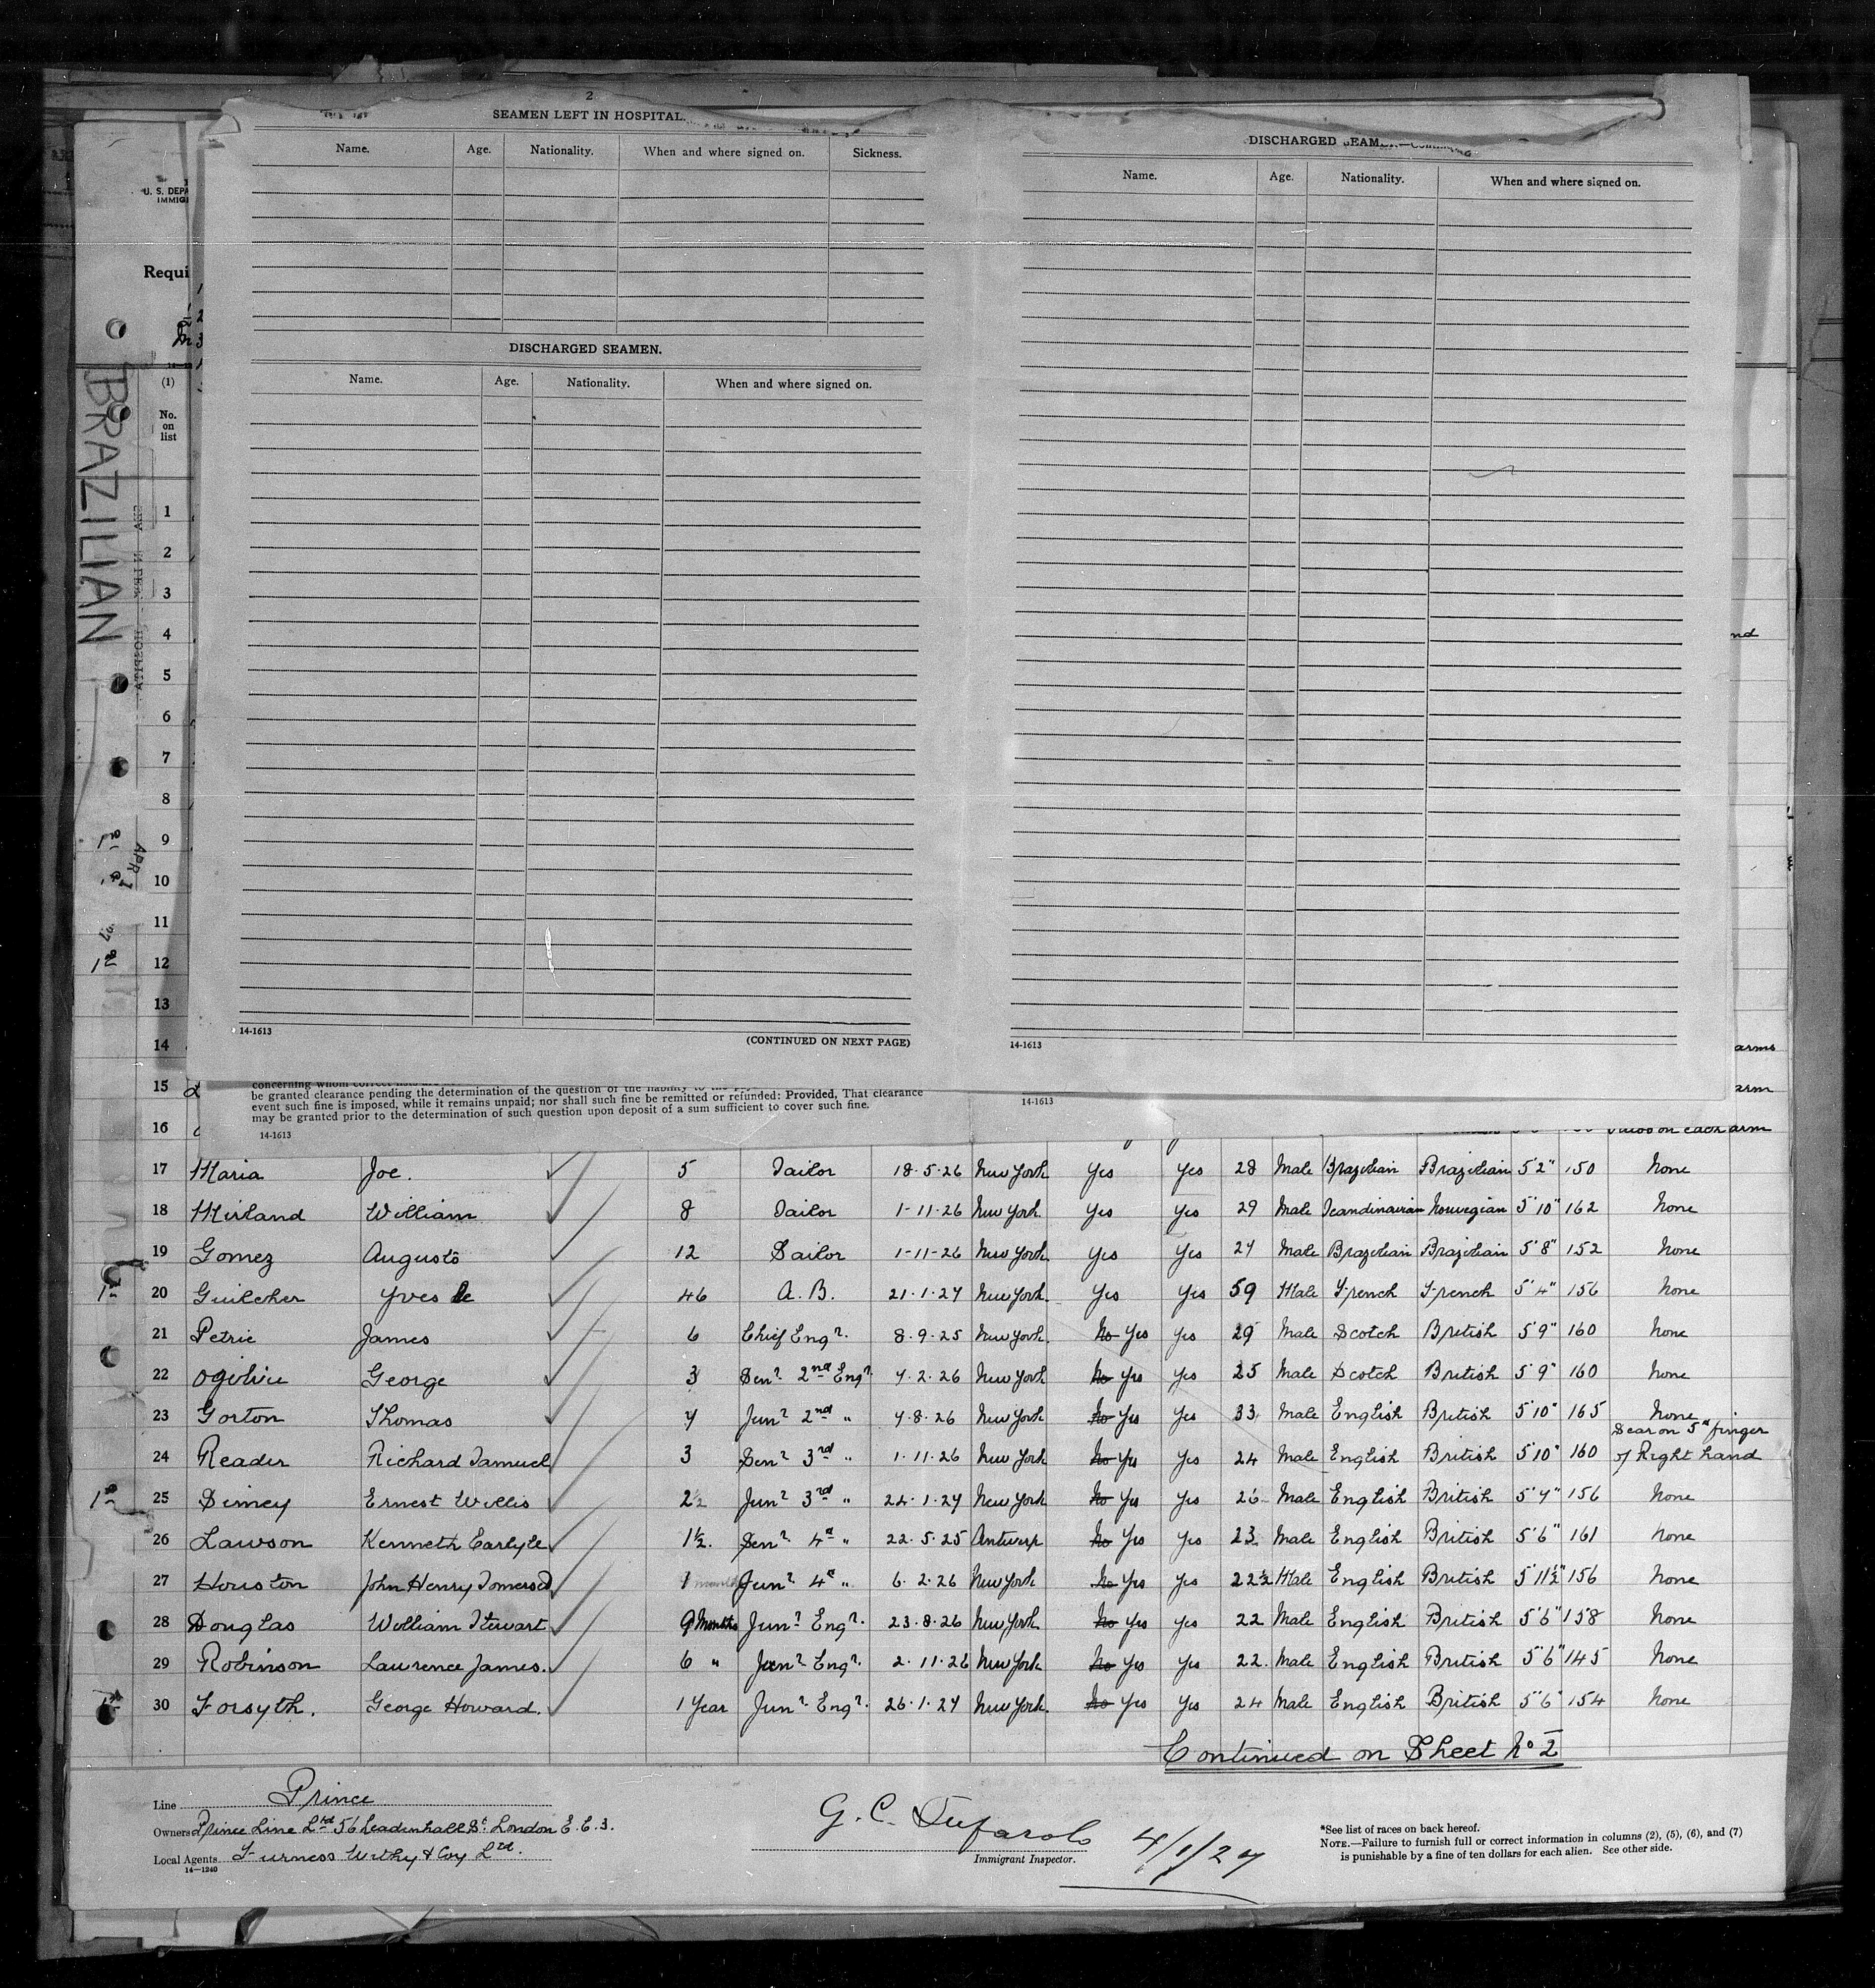 2
SEAMEN LEFT IN HOSPITAL.
Name. Age. Nationality. When and where signed on. Sickness.
DISCHARGED SEAMEN.
Name. Age. Nationality. When and where signed on.
14-1613
(CONTINUED ON NEXT PAGE)
DISCHARGED SEAM
Name. Age. Nationality. When and where signed on.
14-1613
U. S. DEPA
IMMIG
Requi
(1)
No.
on
list
BRAZILIAN
APR 1
1
2
3
4
5
6
7
8
9
10
11
12
13
14 arms
15 arm
16 on each arm
be granted clearance pending the determination of the question of the liability to the
event such fine is imposed, while it remains unpaid; nor shall such fine be remitted or refunded: Provided, That clearance
may be granted prior to the determination of such question upon deposit of a sum sufficient to cover such fine.
14-1613
14-1613
17 Maria Joe. 5 Sailor 18.5.26 New York Yes Yes 28 Male Brazilian Brazilian 5'2" 150 None
18 Mirland William 8 Sailor 1-11-26 New York. Yes Yes 29 Male Scandinavian Norwegian 5'10" 162 None
19 Gomez Augusto 12 Sailor 1-11-26 New York. Yes Yes 27 Male Brazilian Brazilian 5'8" 152 None
20 Guilcher Yves le 46 A.B. 21.1.27 New York. Yes Yes 59 Male French French 5'4" 156 None
21 Petrie James 6 Chief Engr. 8.9.25 New York. No Yes Yes 29 Male Scotch British 5'9" 160 None
22 Ogilvie George 3 Senr 2nd Engr 7.2.26 New York No Yes Yes 25 Male Scotch British 5'9" 160 None
23 Gorton Thomas 7 Junr 2nd " 7.8.26 New York No Yes Yes 33 Male English British 5'10" 165 None
24 Reader Richard Samuel 3 Senr 3rd " 1.11.26 New York No Yes Yes 24 Male English British 5'10" 160 Scar on 5th finger of Right hand
25 Simey Ernest Willis 2½ Junr 3rd " 24.1.27 New York No Yes Yes 26 Male English British 5'7" 156 None
26 Lawson Kenneth Carlyle 1½. Senr 4th " 22.5.25 Antwerp No Yes Yes 23 Male English British 5'6" 161 None
27 Houston John Henry Somerset 1 Junr 4th " 6.2.26 New York No Yes Yes 22½ Male English British 5'11½" 156 None
28 Douglas William Stewart 9 Months Junr Engr. 23.8.26 New York No Yes Yes 22 Male English British 5'6" 158 None
29 Robinson Lawrence James. 6 " Junr Engr. 2.11.26 New York No Yes Yes 22. Male English British 5'6" 145 None
30 Forsyth. George Howard. 1 Year Junr Engr. 26.1.27 New York. No Yes Yes 24 Male English British 5'6" 154 None
Continued on Sheet No 2
Line Prince
Owners Prince Line Ltd 56 Leadenhall St London E.C.3.
Local Agents Furness Withy & Coy Ltd.
14—1240
G. C. 4/1/27
Immigrant Inspector.
*See list of races on back hereof.
NOTE.—Failure to furnish full or correct information in columns (2), (5), (6), and (7)
is punishable by a fine of ten dollars for each alien. See other side.